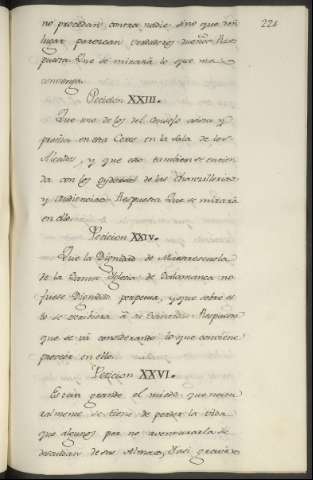 221
no procedan contra nadie sino que en
lugar parezcan verdaderos dueños. Res-
puesta Que se mirará lo que mas
convenga.
Peticion XXIII.
Que uno de los del Consejo asista y
presida en esta Corte en la Sala de los
Alcaldes, y que esto tambien se entien
da con los oydores de las Chancillerias
y Audiencias. Respuesta Que se mirará
en ello.
Peticion XXIV.
Que la Dignidad de Maestrescuela
de la Santa Iglesia de Salamanca no
fuese Dignidad perpetua, y que sobre es
to se escribiera á su Santidad. Respuesta
que se vá considerando lo que conviene
proveer en ello.
Peticion XXVI.
Es tan grande el miedo que natu
ralmente se tiene de perder la vida
que algunos por no aventurarla se
descuidan de sus Almas, y asi